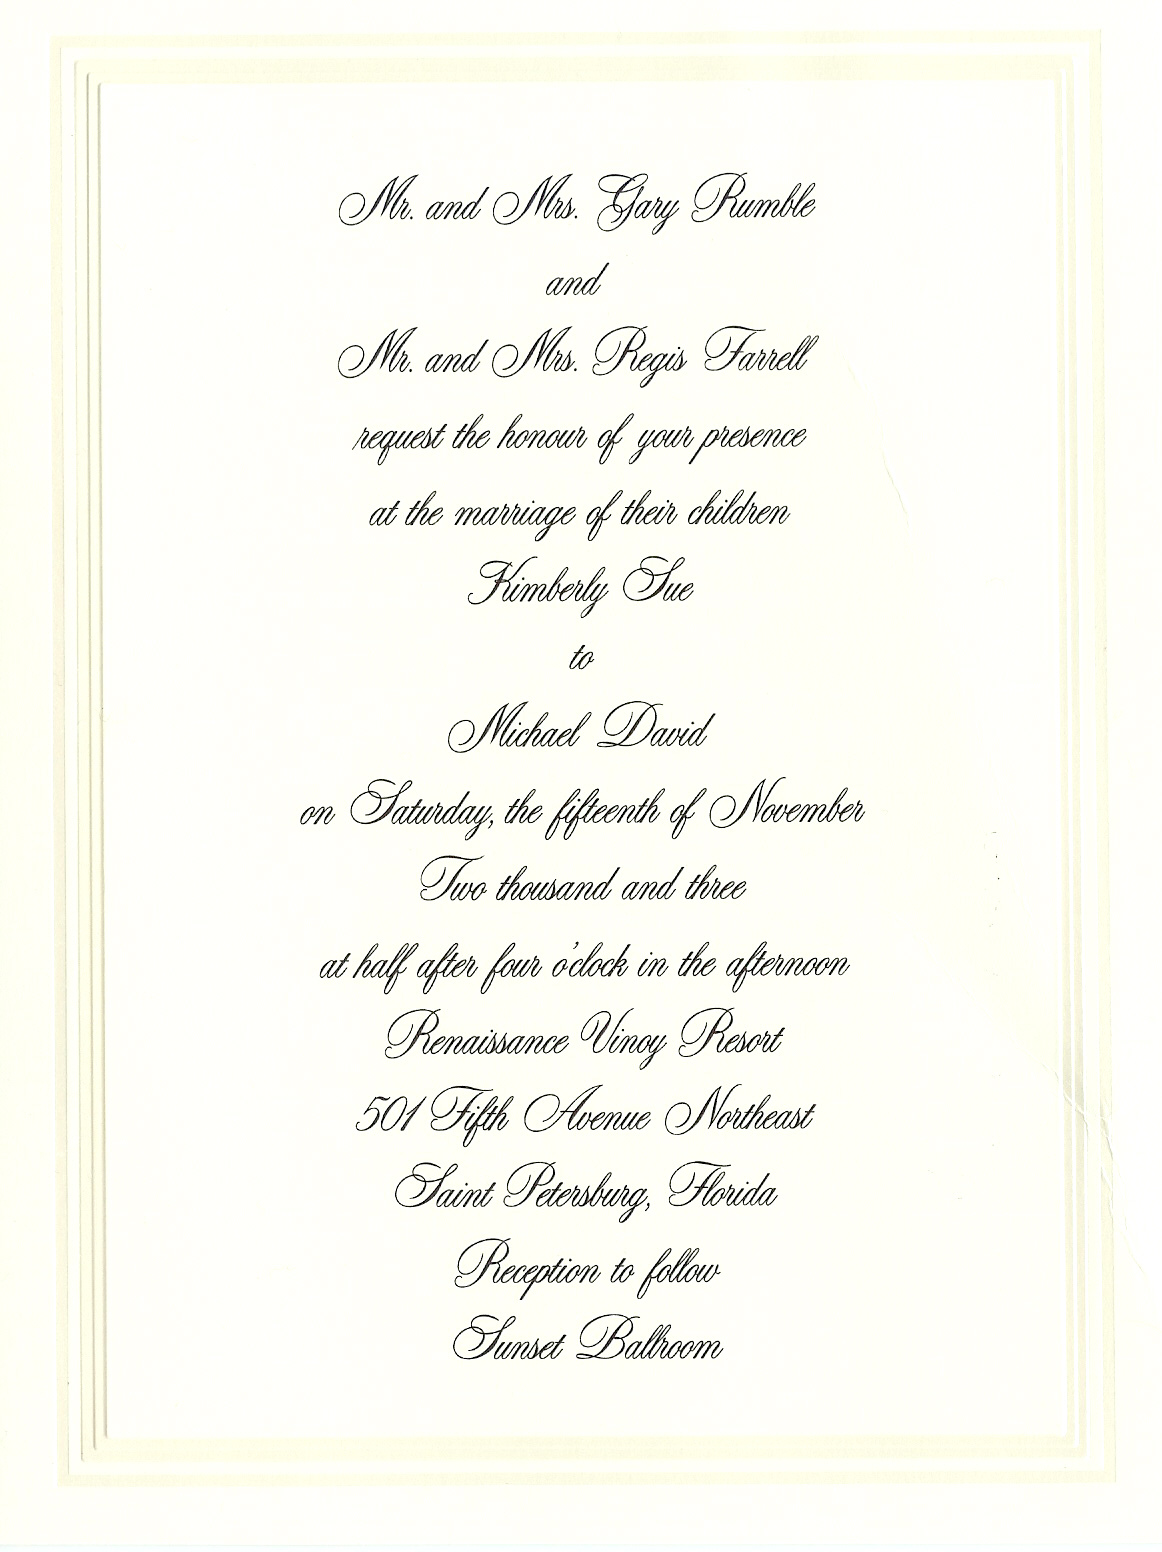 Mr. and Mrs. Gary Rumble
and
Mr. and Mrs. Regis Farrell
request the honour of your presence
at the marriage of their children
Kimberly Sue
to
Michael David
on Saturday, the fifteenth of November
Two thousand and three
at half after four o'clock in the afternoon
Renaissance Vinoy Resort
501 Fifth Avenue Northeast
Saint Petersburg, Florida
Reception to follow
Sunset Ballroom